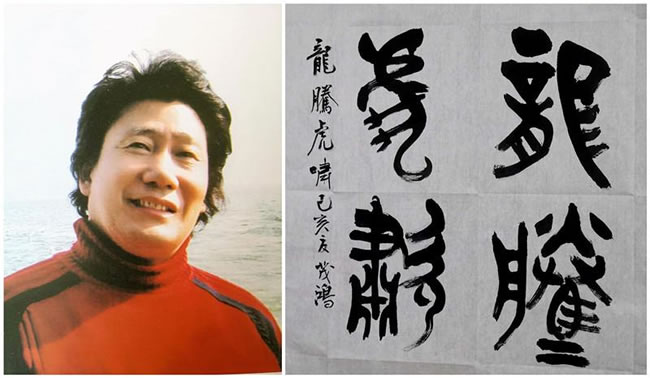 龍騰
虎歗
龍騰虎嘯己亥茂鴻